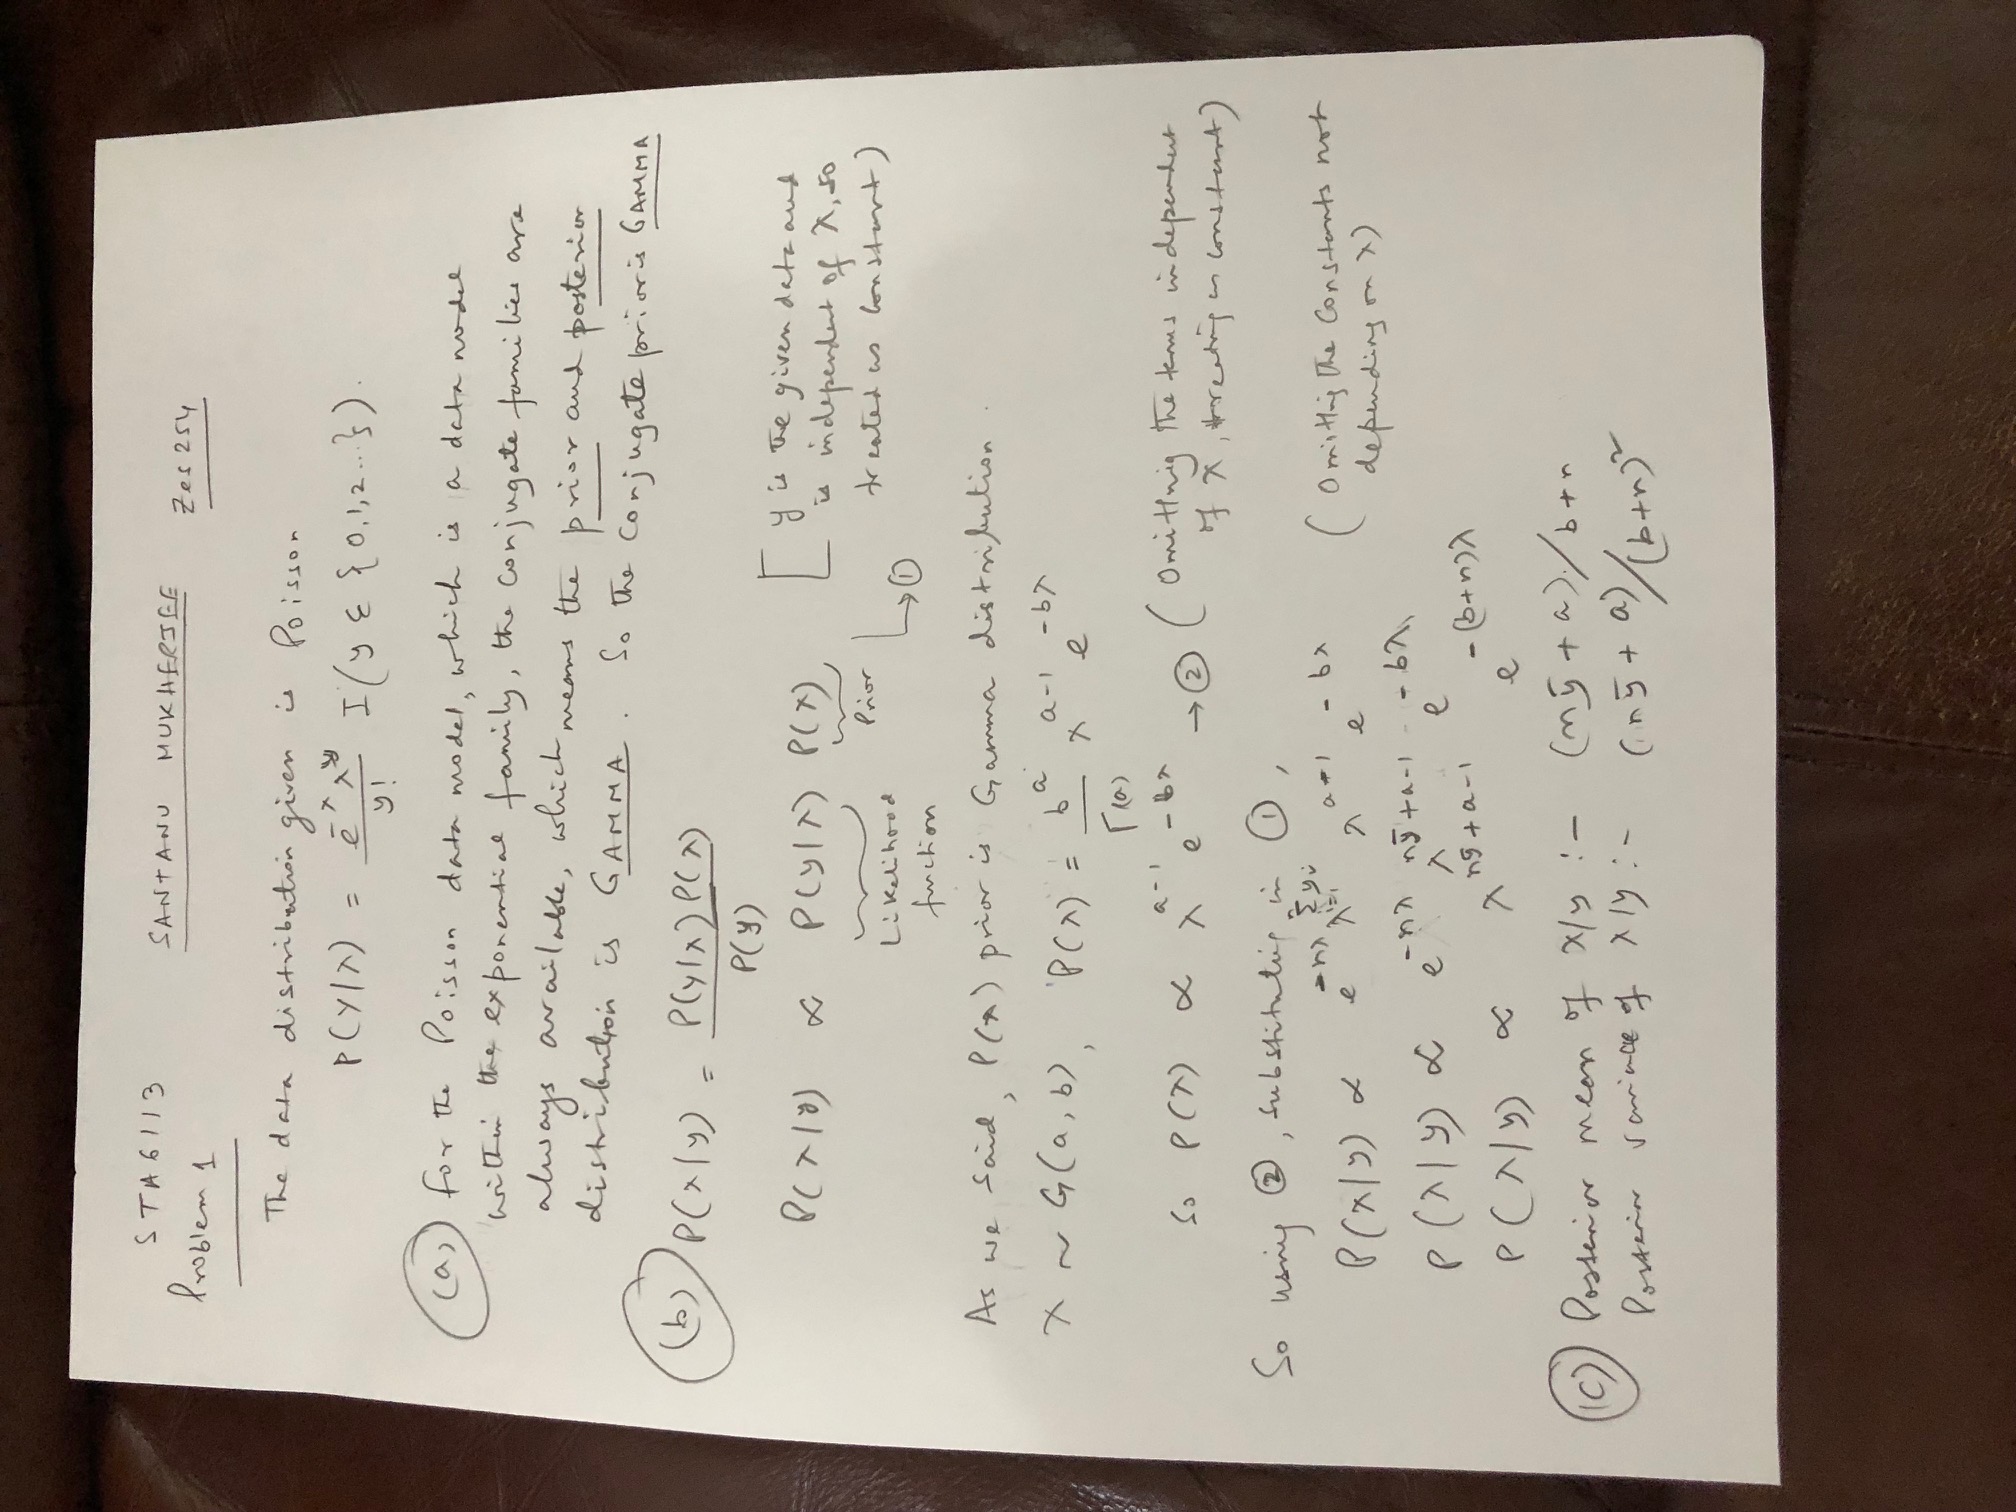 STA6113 SANTANU MUKHERJEE Zes254
Problem 1
The data distribution given is Poisson
P(Y|λ) = e^-λ λ^y / y! I(y ε {0,1,2...}).
(a) for the Poisson data model, which is a data model
within the exponential family, the conjugate families are
always available, which means the prior and posterior
distribution is GAMMA. So the conjugate prior is GAMMA
(b) P(λ|y) = P(y|λ)P(λ) / P(y)
P(λ|y) ∝ P(y|λ) P(λ) [ y is the given data and
is independent of λ, so
treated as constant)
Likelihood function Prior → ①
As we said, P(λ) prior is Gamma distribution.
λ ~ G(a, b), P(λ) = b^a / Γ(a) λ^a-1 e^-bλ
So P(λ) ∝ λ^a-1 e^-bλ → ② (Omitting the terms independent
of λ, treating as constant)
So using ②, substituting in ①,
P(λ|y) ∝ e^-nλ λ^Σ_{i=1}^n yi λ^a-1 e^-bλ (Omitting the constants not
depending on λ)
P(λ|y) ∝ e^-nλ λ^nȳ+a-1 e^-bλ
P(λ|y) ∝ λ^nȳ+a-1 e^-(b+n)λ
(C) Posterior mean of λ/y :- (nȳ + a)/b+n
Posterior variance of λ|y :- (nȳ + a)/(b+n)²